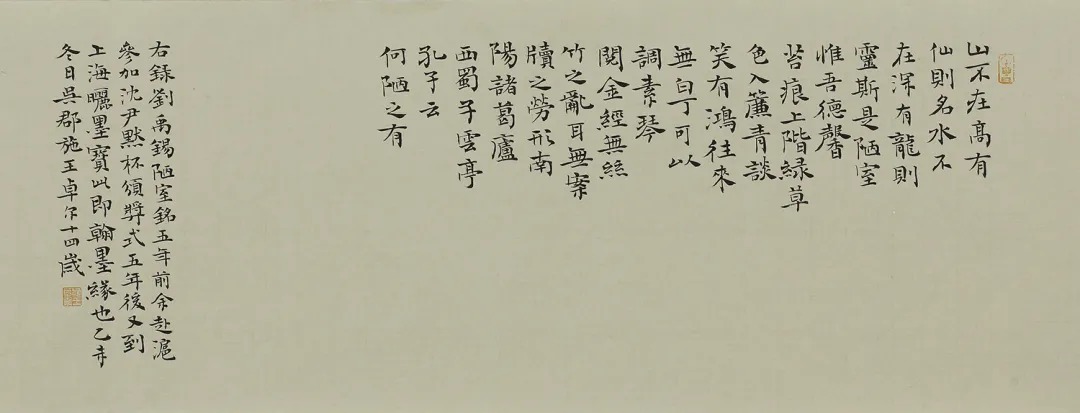 山不在高有
仙則名水不
在深有龍則
靈斯是陋室
惟吾德馨
苔痕上階緑草
色入簾青談
笑有鴻往來
無白丁可以
調素琴
閱金經無絲
竹之亂耳無案
牘之勞形南
陽諸葛廬
西蜀子雲亭
孔子云
何陋之有
右錄劉禹錫陋室銘五年前余赴滬
參加沈尹默杯頒獎式五年後又到
上海曬墨寶此即翰墨緣也乙未
冬日吳郡施王卓尔十四歲